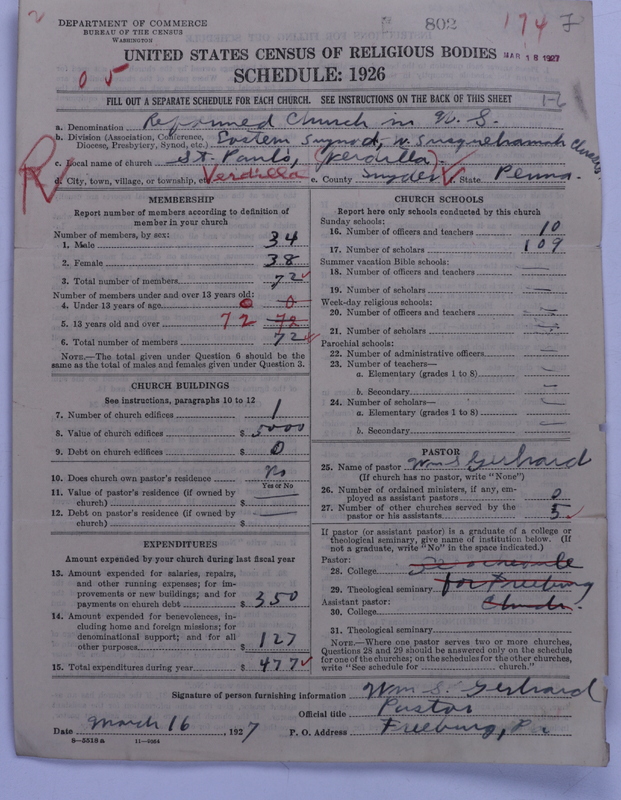 802
174
DEPARTMENT OF COMMERCE
BUREAU OF THE CENSUS
WASHINGTON
UNITED STATES CENSUS OF RELIGIOUS BODIES
MAR 18 1927
SCHEDULE: 1926
FILL OUT A SEPARATE SCHEDULE FOR EACH CHURCH. SEE INSTRUCTIONS ON THE BACK OF THIS SHEET
1-6
a. Denomination Reformed Church in U. S.
b. Division (Association, Conference, Diocese, Presbytery, Synod, etc.) Eastern Synod, W. Susquehannah Classis
c. Local name of church St. Paul's, (Verdilla)
d. City, town, village, or township, etc. Verdilla e. County Snyder f. State Penna.
R
MEMBERSHIP
Report number of members according to definition of member in your church
Number of members, by sex:
1. Male 34
2. Female 38
3. Total number of members 72
Number of members under and over 13 years old:
4. Under 13 years of age 0 0
5. 13 years old and over 72 72
6. Total number of members 72
NOTE.—The total given under Question 6 should be the same as the total of males and females given under Question 3.
CHURCH BUILDINGS
See instructions, paragraphs 10 to 12
7. Number of church edifices 1
8. Value of church edifices $ 5000
9. Debt on church edifices $ 0
10. Does church own pastor's residence No
Yes or No
11. Value of pastor's residence (if owned by church) $
12. Debt on pastor's residence (if owned by church) $
EXPENDITURES
Amount expended by your church during last fiscal year
13. Amount expended for salaries, repairs, and other running expenses; for improvements or new buildings; and for payments on church debt $ 350
14. Amount expended for benevolences, including home and foreign missions; for denominational support; and for all other purposes $ 127
15. Total expenditures during year $ 477
CHURCH SCHOOLS
Report here only schools conducted by this church
Sunday schools:
16. Number of officers and teachers 10
17. Number of scholars 109
Summer vacation Bible schools:
18. Number of officers and teachers —
19. Number of scholars —
Week-day religious schools:
20. Number of officers and teachers —
21. Number of scholars —
Parochial schools:
22. Number of administrative officers —
23. Number of teachers—
a. Elementary (grades 1 to 8) —
b. Secondary —
24. Number of scholars—
a. Elementary (grades 1 to 8) —
b. Secondary —
PASTOR
25. Name of pastor Wm S Gerhard
(If church has no pastor, write "None")
26. Number of ordained ministers, if any, employed as assistant pastors 0
27. Number of other churches served by the pastor or his assistants 5
If pastor (or assistant pastor) is a graduate of a college or theological seminary, give name of institution below. (If not a graduate, write "No" in the space indicated.)
Pastor:
28. College
29. Theological seminary for Freeburg
Assistant pastor: Church.
30. College
31. Theological seminary
NOTE.—Where one pastor serves two or more churches, Questions 28 and 29 should be answered only on the schedule for one of the churches; on the schedules for the other churches, write "See schedule for church."
Signature of person furnishing information Wm S. Gerhard
Official title Pastor
Date March 16 1927 P. O. Address Freeburg, Pa
8—5518a 11—9064